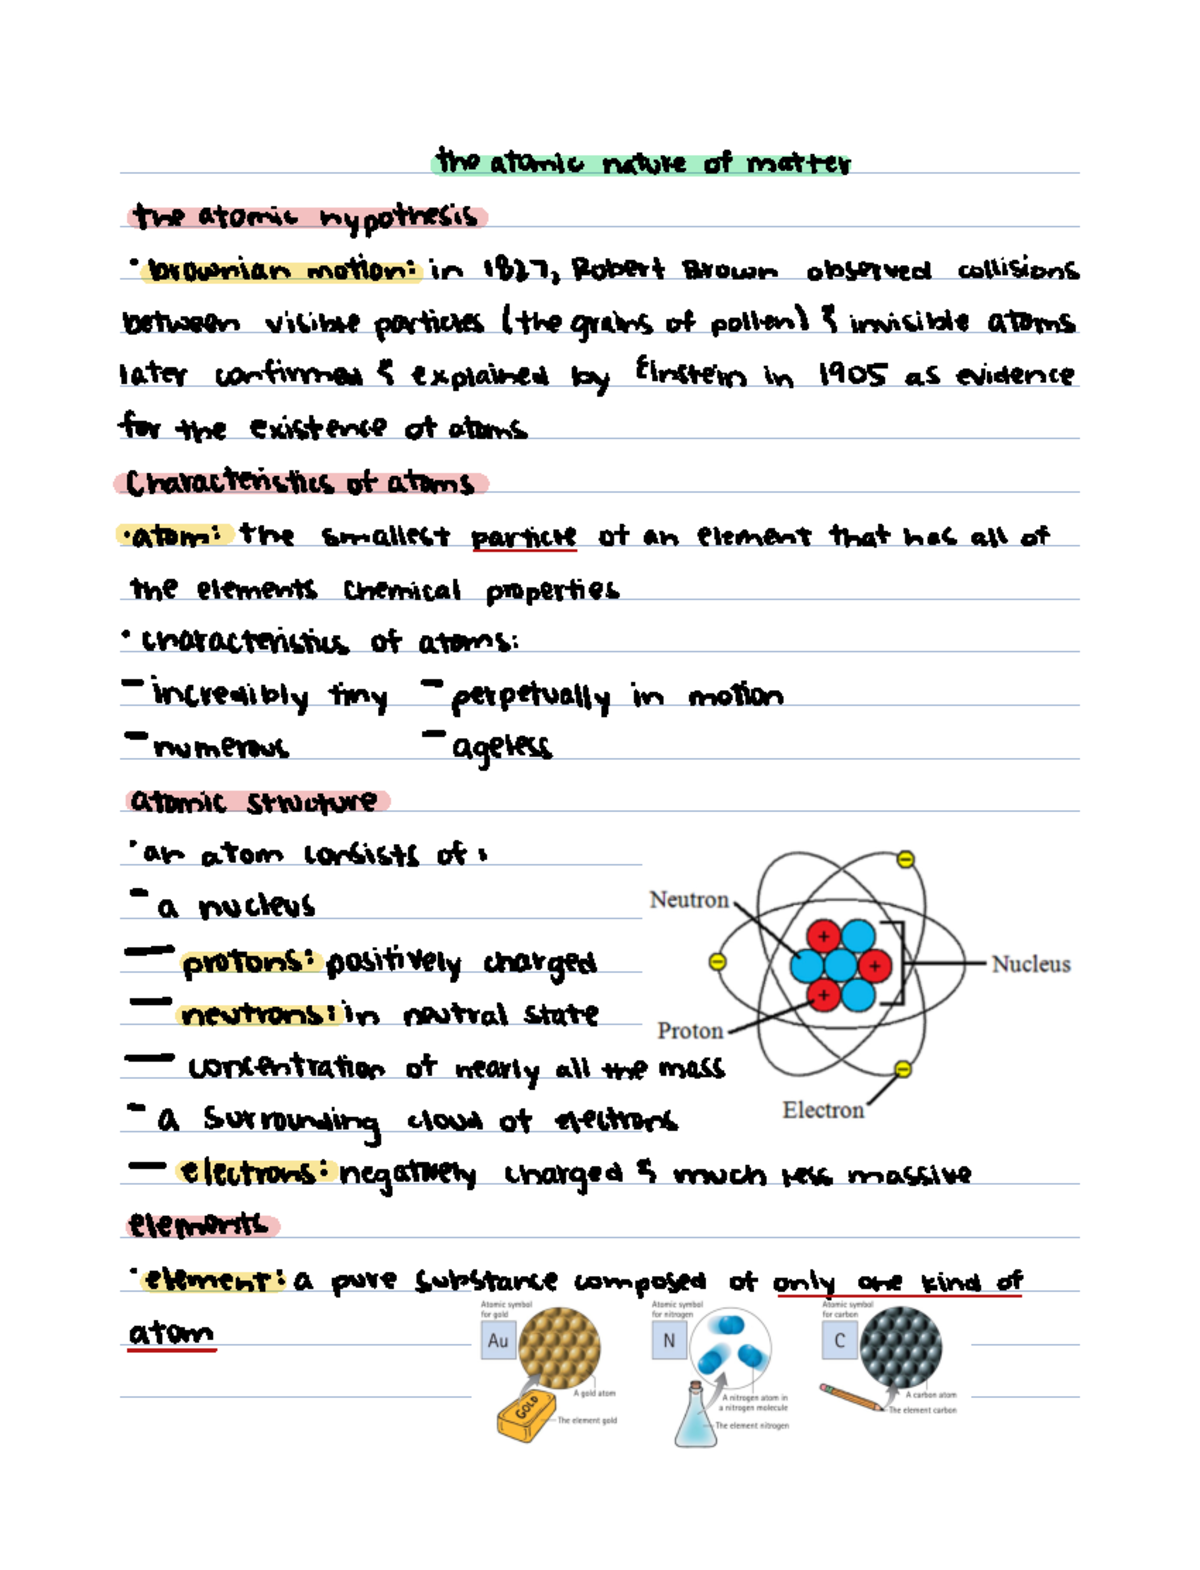 the atomic nature of matter
the atomic hypothesis
· brownian motion: in 1827, Robert Brown observed collisions
between visible particles (the grains of pollen) & invisible atoms
later confirmed & explained by Einstein in 1905 as evidence
for the existence of atoms
Characteristics of atoms
· atom: the smallest particle of an element that has all of
the elements chemical properties
· characteristics of atoms:
- incredibly tiny - perpetually in motion
- numerous - ageless
atomic structure
· an atom consists of:
- a nucleus
— protons: positively charged
— neutrons: in neutral state
— concentration of nearly all the mass
- a surrounding cloud of electrons
— electrons: negatively charged & much less massive
Neutron
Nucleus
Proton
Electron
+
+
+
−
−
−
elements
· element: a pure substance composed of only one kind of
atom
Atomic symbol
for gold
Au
A gold atom
GOLD
The element gold
Atomic symbol
for nitrogen
N
A nitrogen atom in
a nitrogen molecule
The element nitrogen
Atomic symbol
for carbon
C
A carbon atom
The element carbon